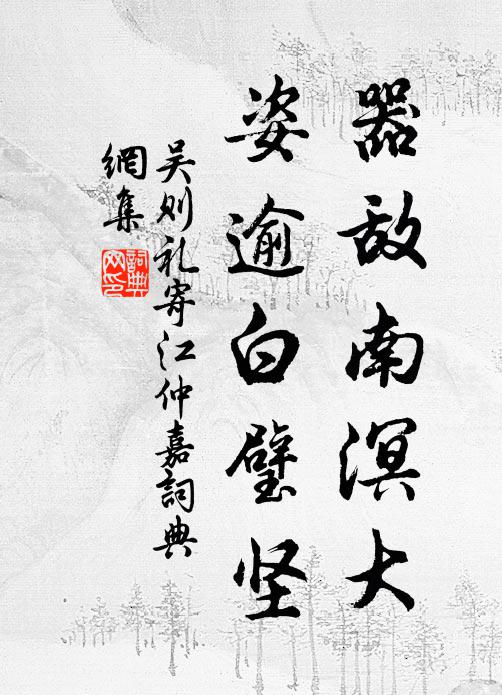 器敌南溟大
姿逾白璧坚
吴则礼寄江仲嘉詞典
網集
詞典
网印